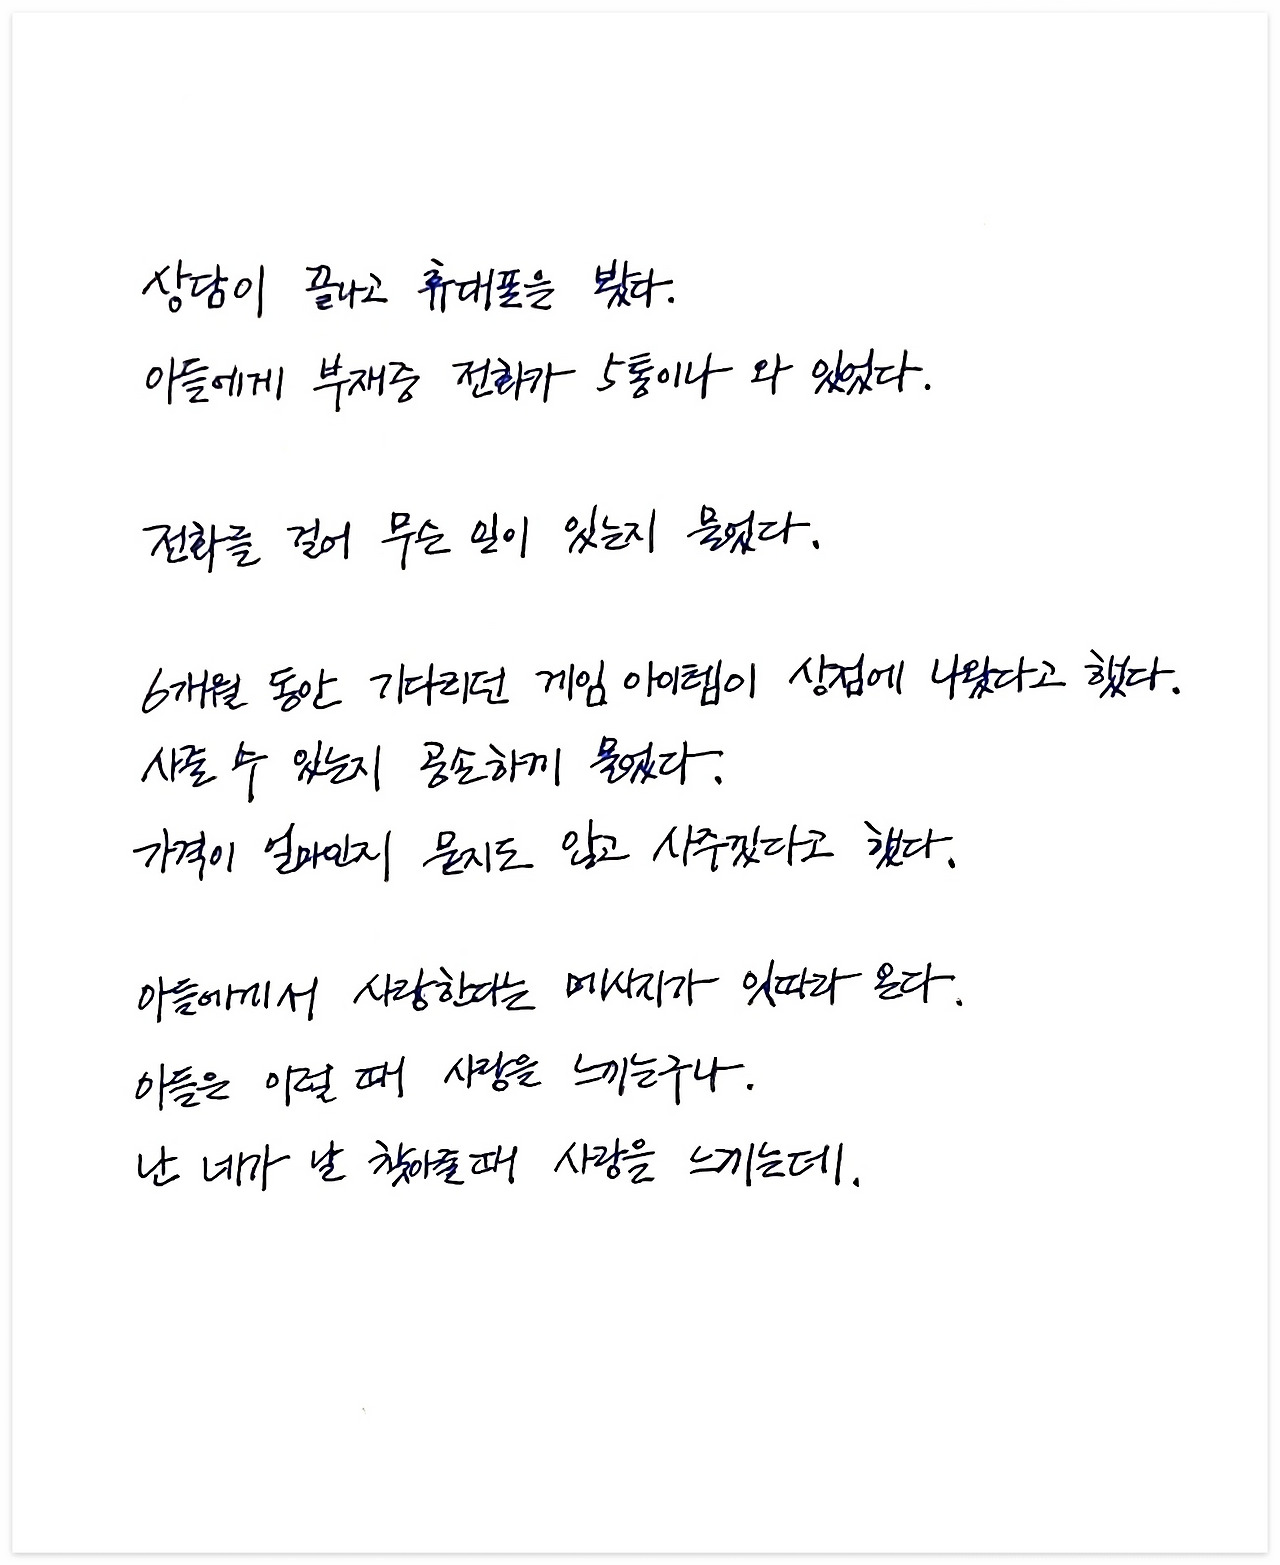 상담이 끝나고 휴대폰을 봤다.
아들에게 부재중 전화가 5통이나 와 있었다.
전화를 걸어 무슨 일이 있는지 물었다.
6개월 동안 기다리던 게임 아이템이 상점에 나왔다고 했다.
사줄 수 있는지 공손하게 물었다.
가격이 얼마인지 묻지도 않고 사주겠다고 했다.
아들에게서 사랑한다는 메시지가 잇따라 온다.
아들은 이럴 때 사랑을 느끼는구나.
난 네가 날 찾아줄 때 사랑을 느끼는데.